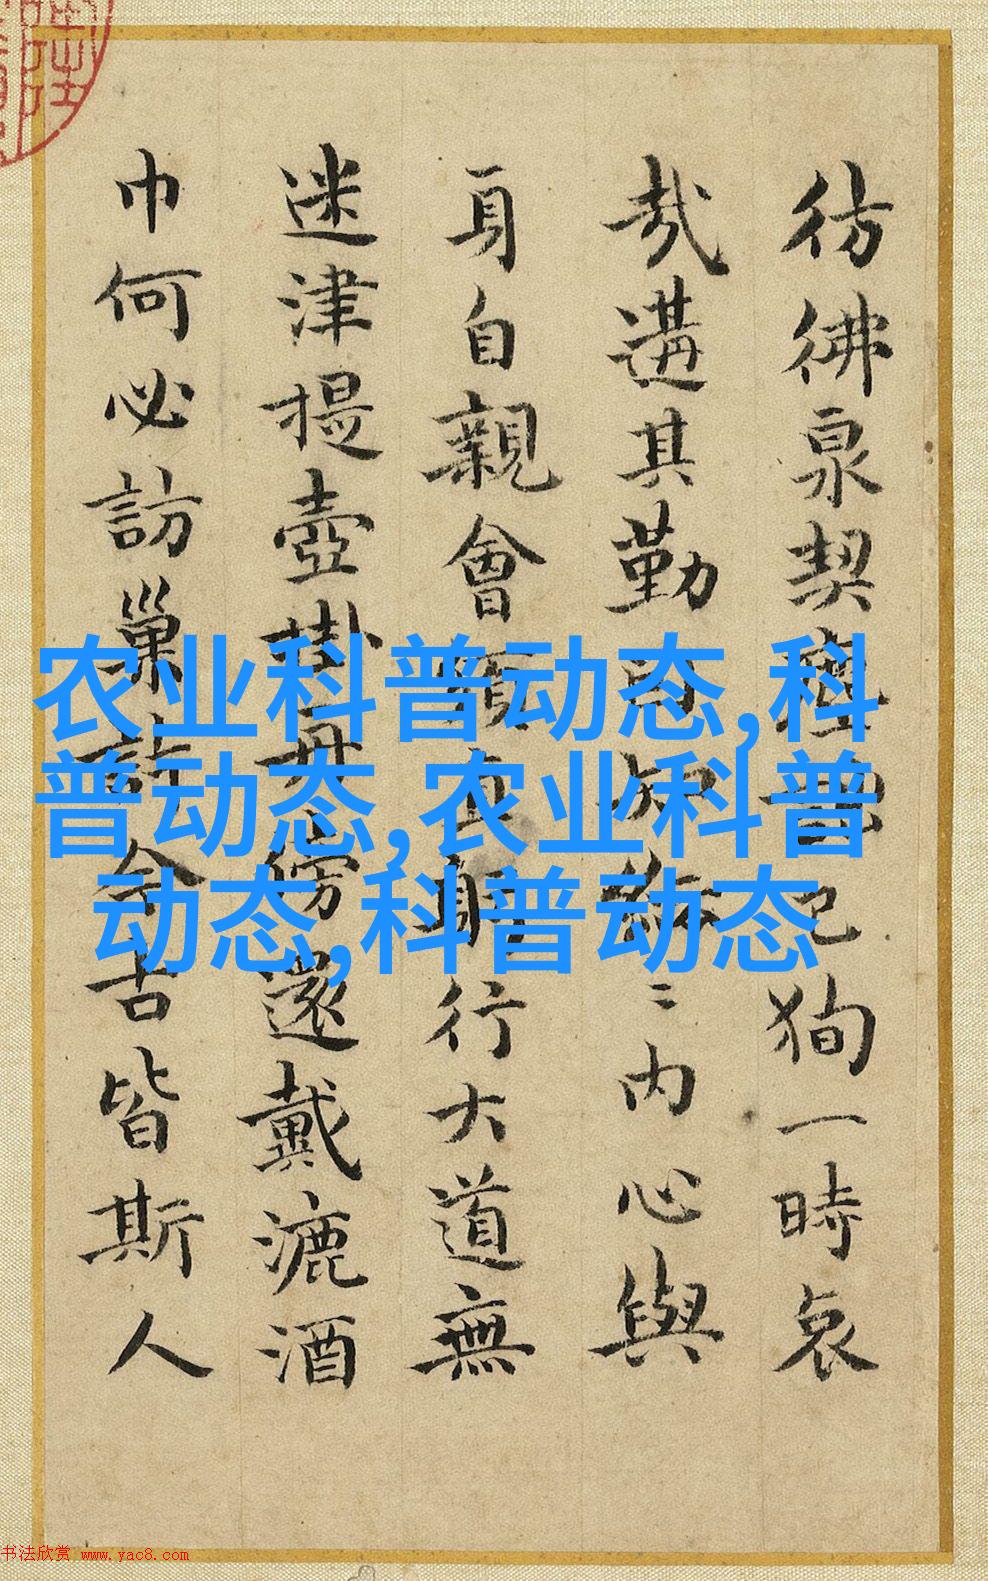 彷彿泉契 已狗一時哀
哉遘其勤 内心與
身自親會 躬行大道無
迷津提壺掛 還戴漉酒
巾何必訪巢 今古皆斯人
农业科普动态,科
普动态,农业科普
动态,科普动态
书法欣赏 www.yac8.com